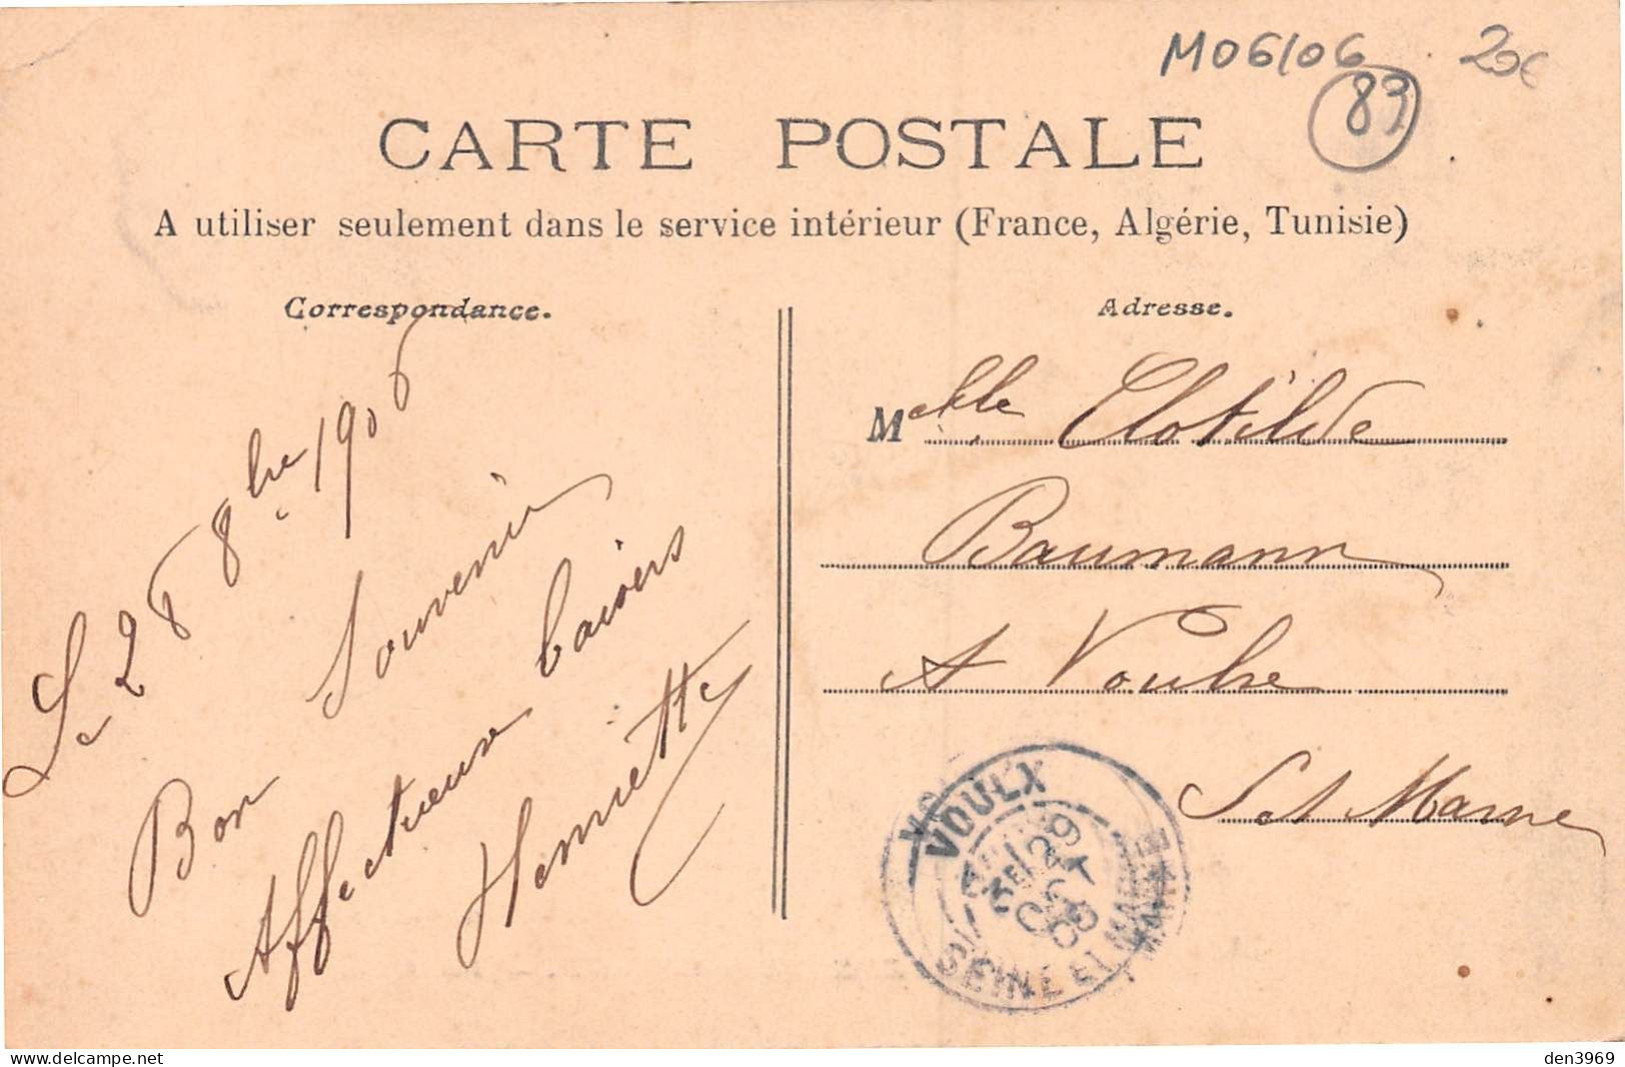 M06/06 20€
83
CARTE POSTALE
A utiliser seulement dans le service intérieur (France, Algérie, Tunisie)
Correspondance.
Le 28 8bre 1906
Bon Souvenir
Affectueux baisers
Henriette
Adresse.
Melle Clotilde
Baumann
A Voulxe
S et Marne
VOULX
29
OCT
06
SEINE ET MARNE
www.delcampe.net
den3969